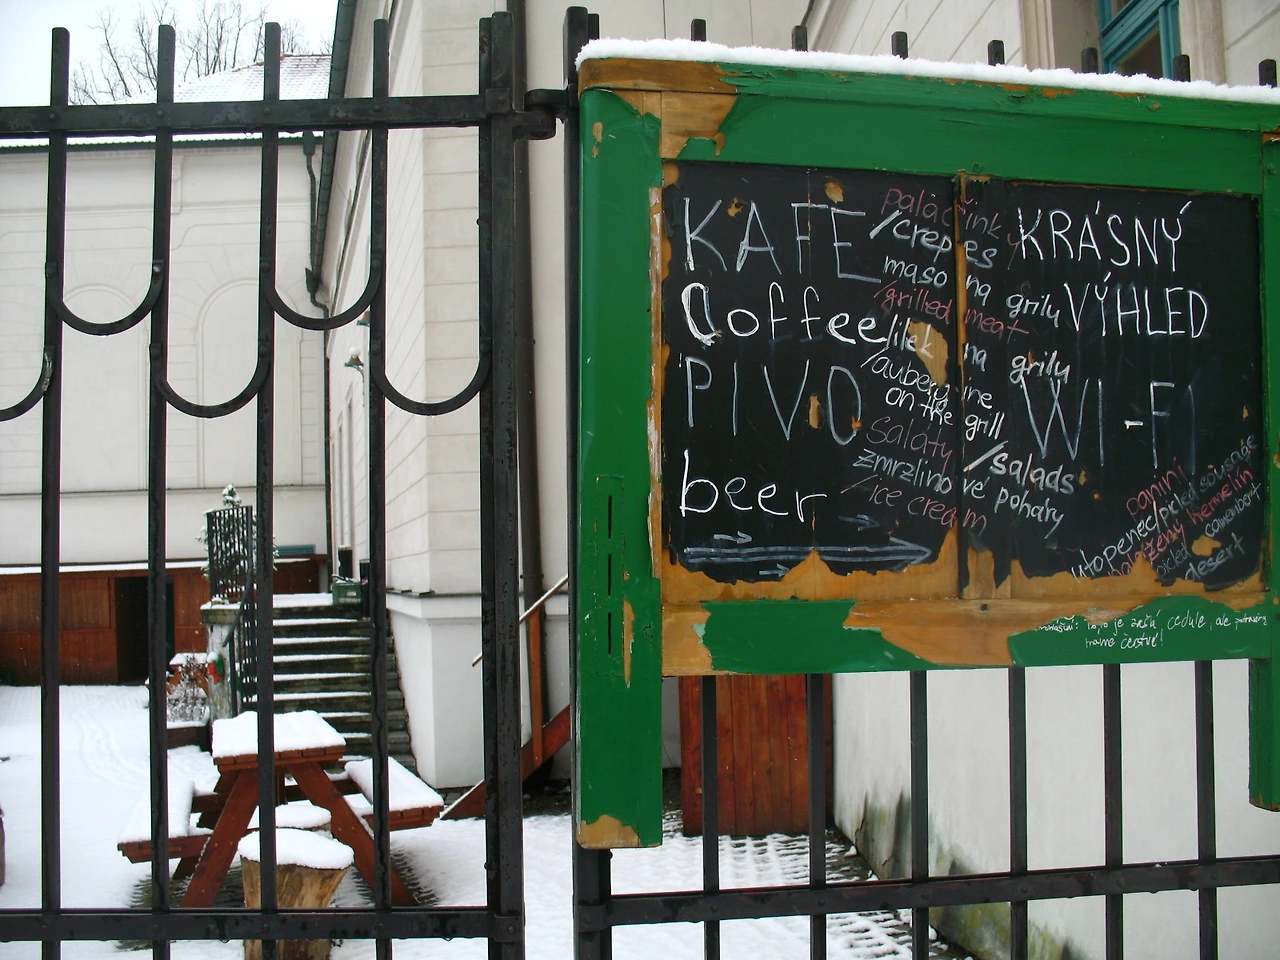 KAFE
Coffee
PIVO
beer
palačinky
/crepes
maso na grilu
/grilled meat
lilek na grilu
/aubergine
on the grill
Salaty /salads
zmrzlinové poháry
/ice cream
KRÁSNÝ
VÝHLED
WI-FI
panini
utopenec/picled sousage
naložený hermelín
picled camembert
desert
je cedule, ale
máme čerstvé!